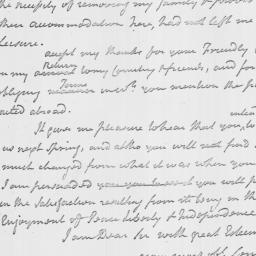 the necessity of removing my family &
their accommodation here, had not left me
leisure.
accept my thanks for your Friendly
Return
on my arrival to my Country & friends, and for
Terms
obliging manner in wch. you mention the
acted abroad.
It gives me pleasure to hear that you,
us next spring, and altho you will not find
much changed from what it was when you
I am persuaded you you will
in the Satisfaction resulting from its being in th
Enjoyment of Peace liberty & Independence
I am Dear Sir with great Esteem